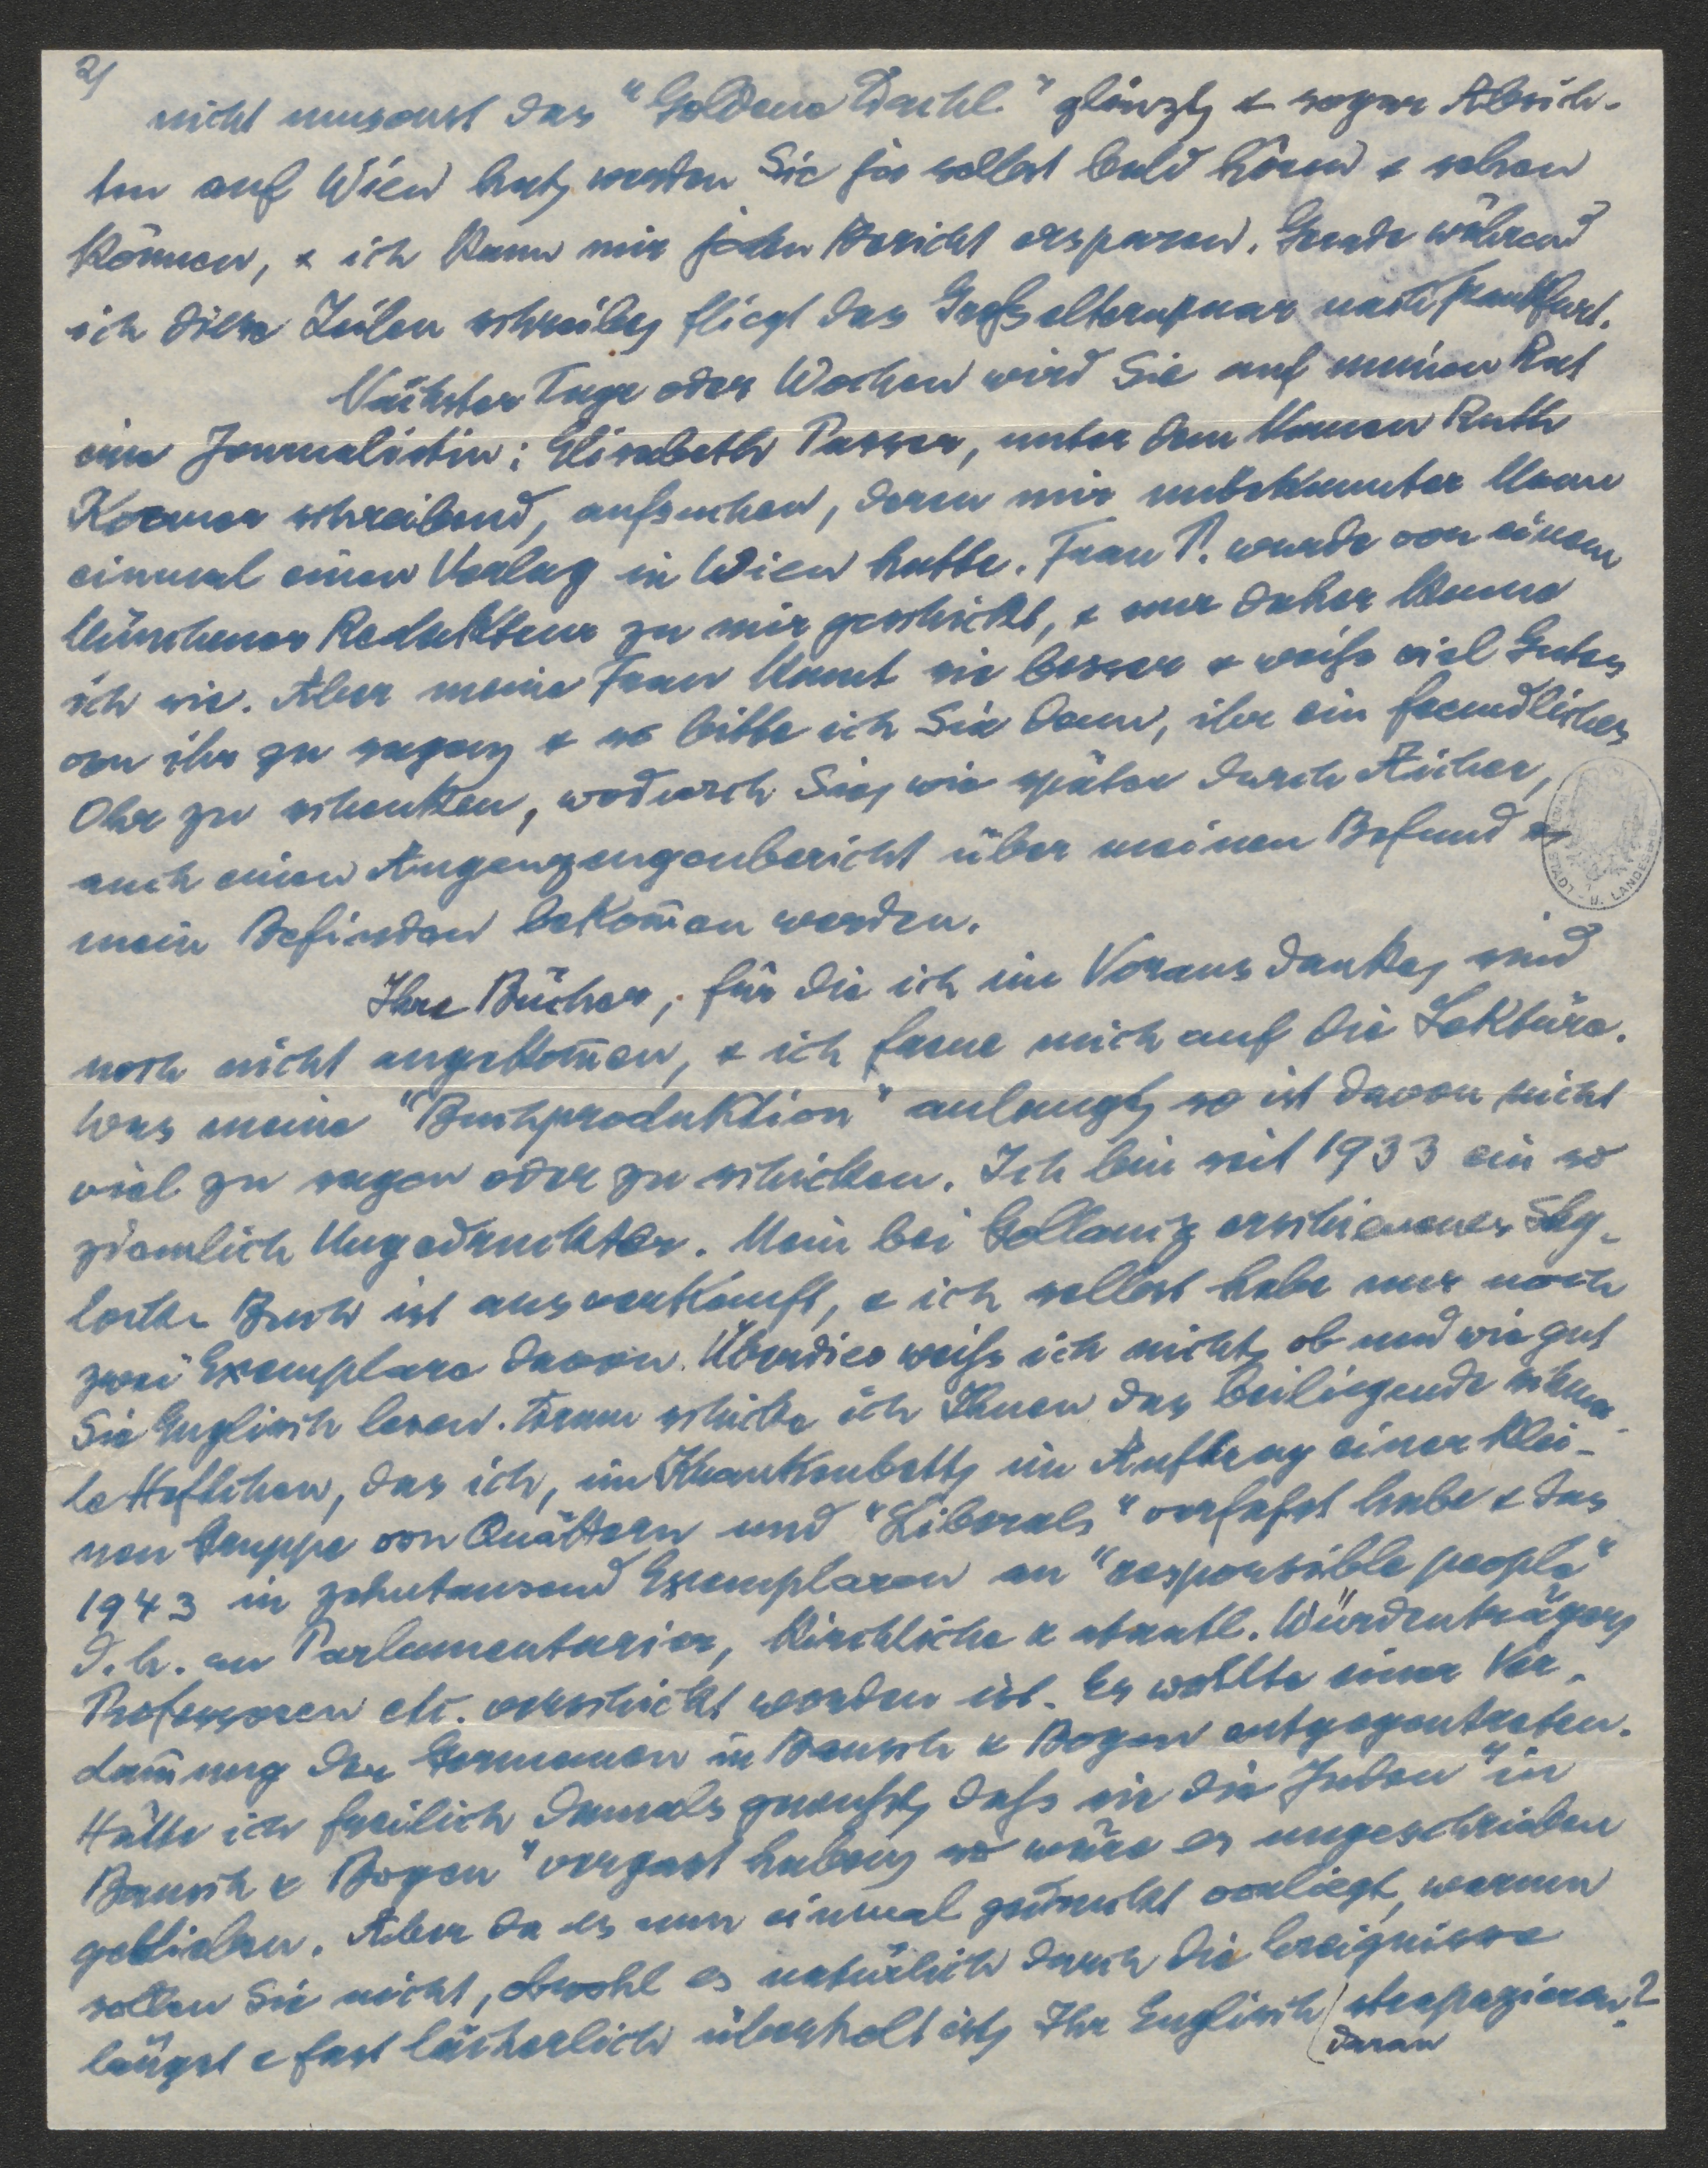 2)
nicht umsonst das "Goldene Dachl" glänzt, & sogar Absich-
ten auf Wien hat, werden Sie ja selbst bald hören & sehen
können, & ich kann mir jeden Bericht ersparen. Gerade während
ich diese Zeilen schreibe, fliegt das Großelternpaar nach Frankfurt.
Nächster Tage oder Wochen wird Sie auf meinen Rat
eine Journalistin: Elisabeth Passer, unter dem Namen Ruth
Koerner schreibend, aufsuchen, deren mir unbekannter Mann
einmal einen Verlag in Wien hatte. Frau P. wurde von einem
Münchener Redakteur zu mir geschickt, & nur daher kenne
ich sie. Aber meine Frau kennt sie besser & weiß viel Gutes
von ihr zu sagen, & so bitte ich Sie denn, ihr ein freundliches
Ohr zu schenken, wodurch Sie, wie später durch Aicher,
auch einen Augenzeugenbericht über meinen Befund &
mein Befinden bekom̄en werden.
Ihre Bücher, für die ich im Voraus danke, sind
noch nicht angekom̄en, & ich freue mich auf die Lektüre.
Was meine "Buchproduktion" anlangt, so ist davon nicht
viel zu sagen oder zu schicken. Ich bin seit 1933 ein so
ziemlich Ungedruckter. Mein bei Gollancz erschienenes
Buch ist ausverkauft, & ich selbst habe nur noch
zwei Exemplare davon. Überdies weiß ich nicht, ob und wie gut
Sie Englisch lesen. Drum schicke ich Ihnen das beiliegende schma-
le Heftchen, das ich, im Krankenbett, im Auftrag einer klei-
nen Gruppe von Quäkern und "Liberals" verfaßt habe & das
1943 in zehntausend Exemplaren an "responsible people"
d.h. an Parlamentarier, kirchliche & staatl. Würdenträger,
Professoren etc. verschickt worden ist. Es wollte einer Ver-
dam̄ung der Germanen in Bausch & Bogen entgegentreten.
Hätte ich freilich damals gewußt, daß sie die Juden "in
Bausch & Bogen" vergast haben, so wäre es ungeschrieben
geblieben. Aber da es nun einmal gedruckt vorliegt, warum
sollen Sie nicht, obwohl es natürlich durch die Ereignisse
längst & fast lächerlich überholt ist, Ihr Englisch daran strapazieren?
STADT - U. LANDESBIBL.